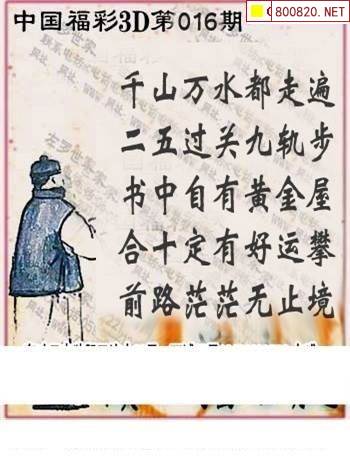 中国福彩3D第016期
800820.NET
千山万水都走遍
二五过关九轨步
书中自有黄金屋
合十定有好运攀
前路茫茫无止境